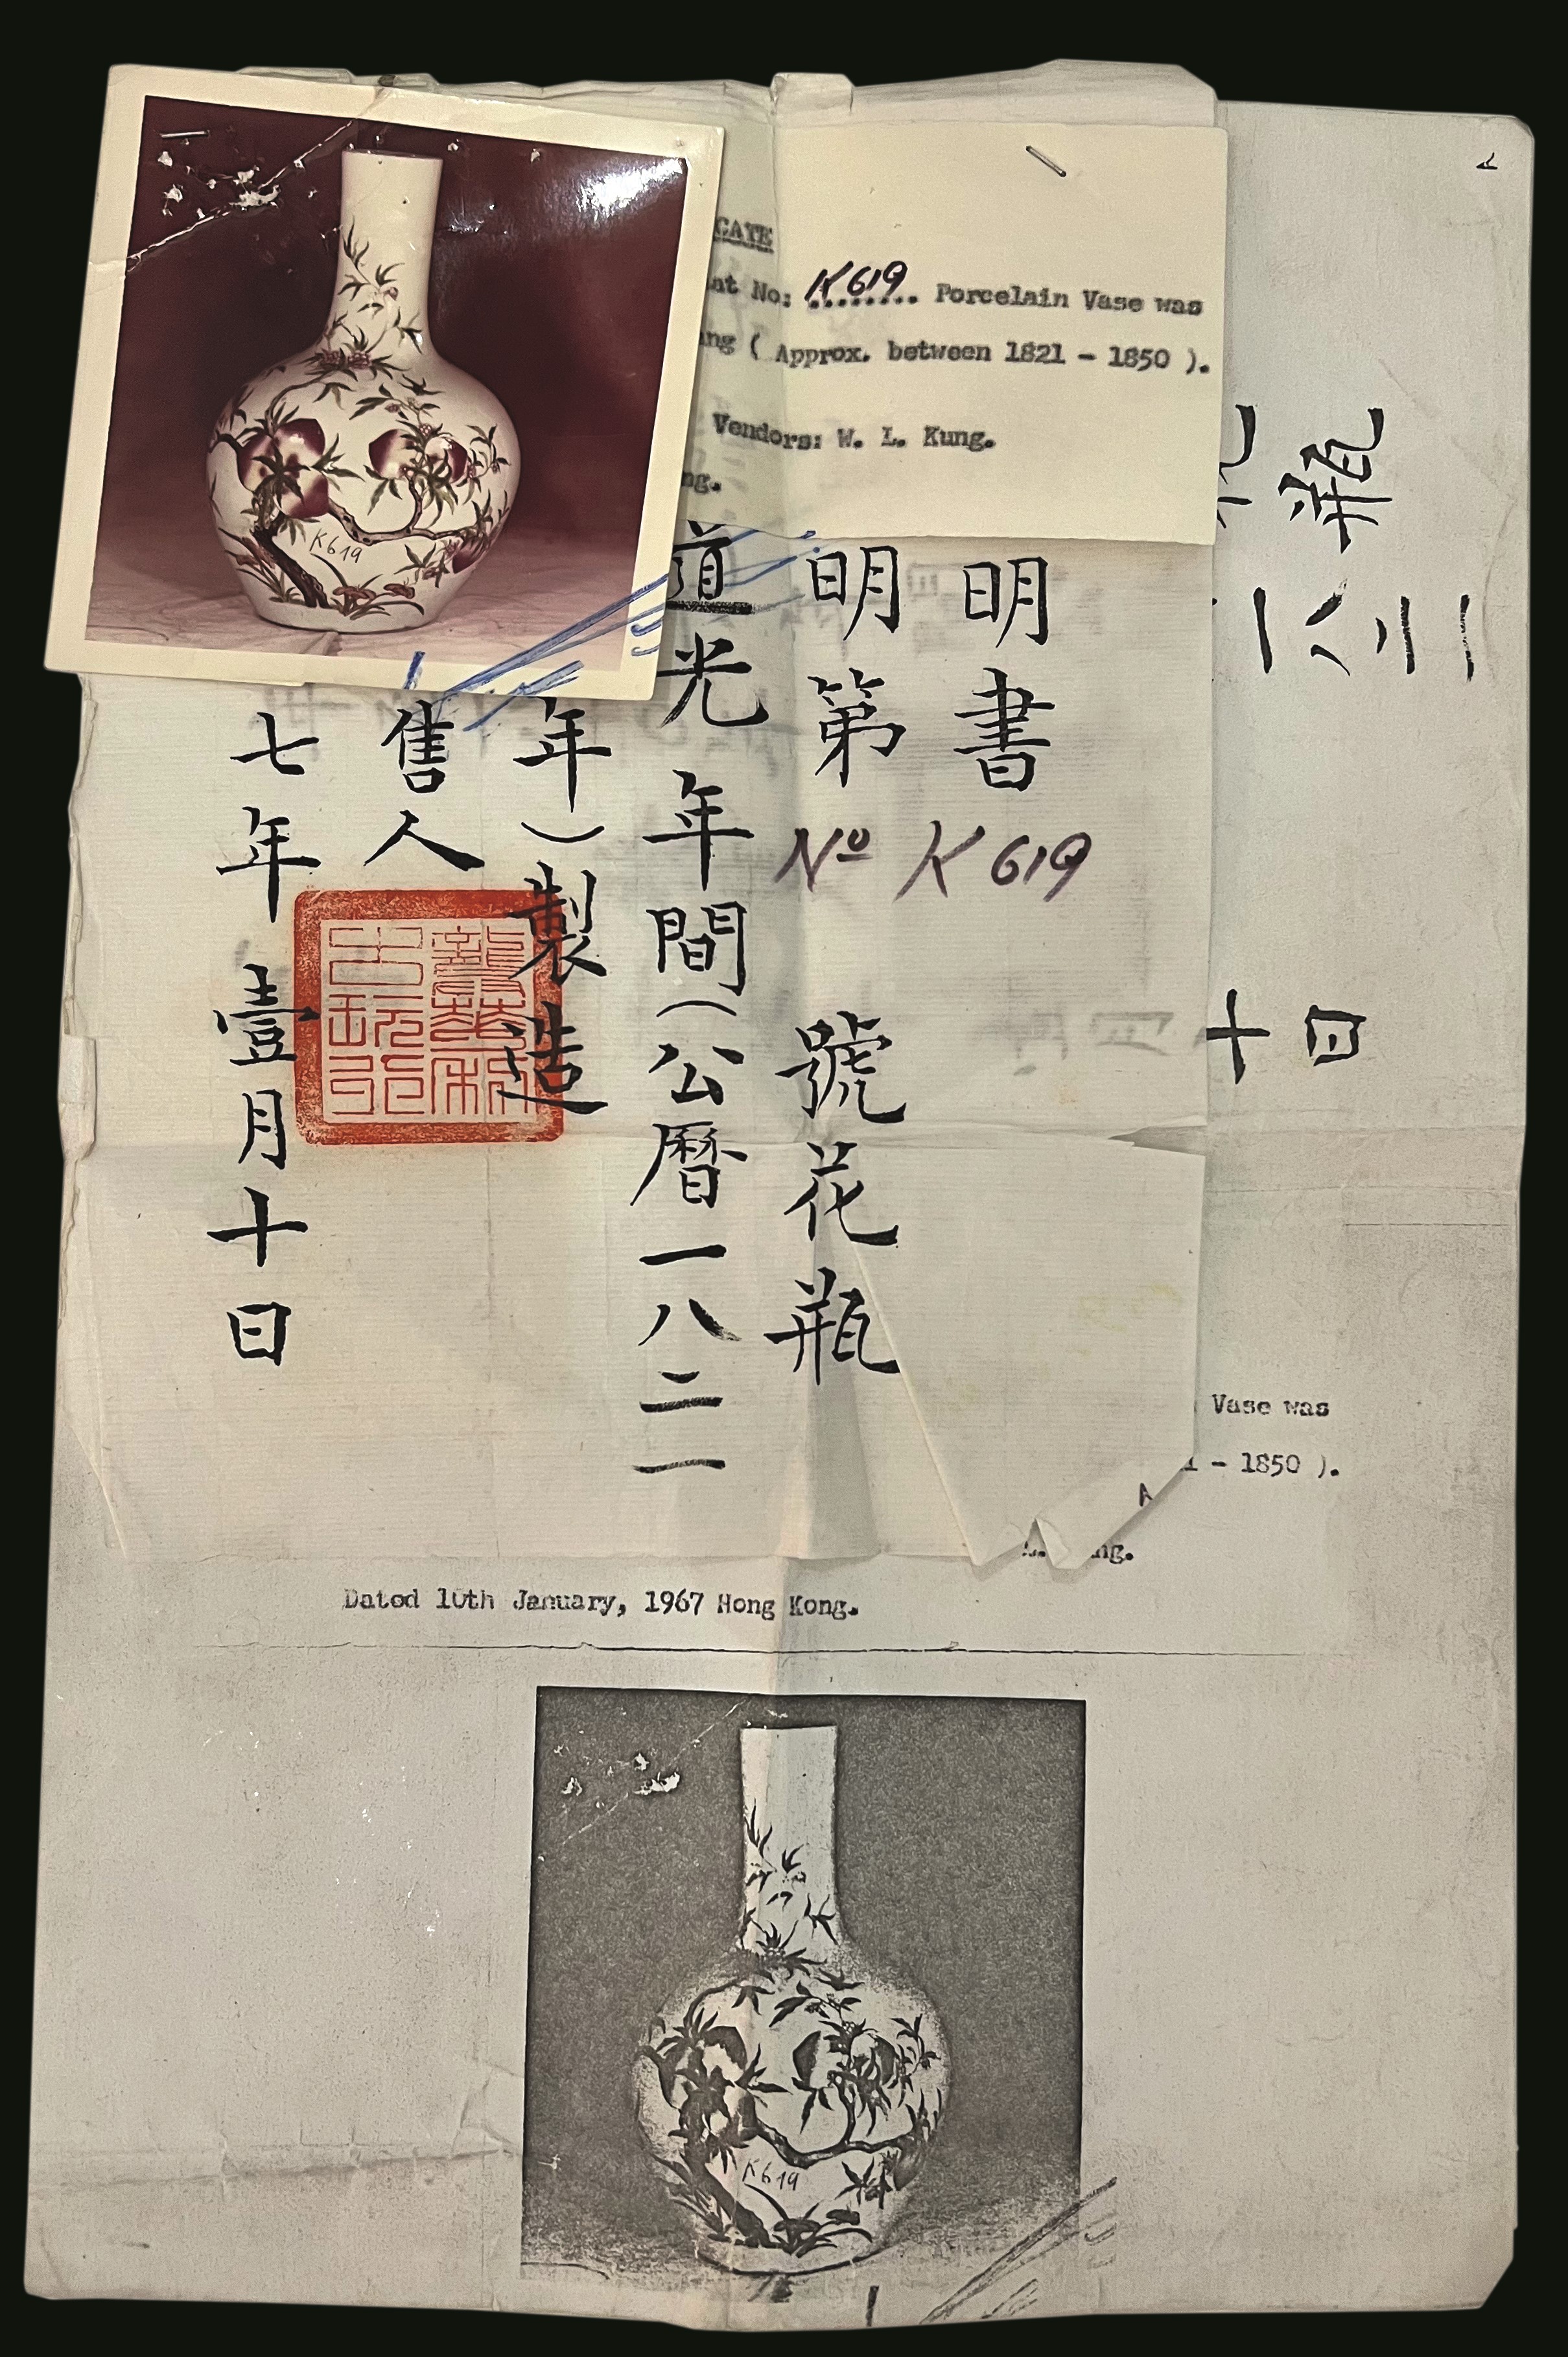 K619
CATE
at No: K619 Porcelain Vase was
ng ( Approx. between 1821 - 1850 ).
Vendors: W. L. Kung.
ng.
明書
明第 Nº K619 號花瓶
道光年間（公曆一八二一
年）製造
售人
七年壹月十日
瓶
一八二一
十日
Vase was
- 1850 ).
ng.
Dated 10th January, 1967 Hong Kong.
K619